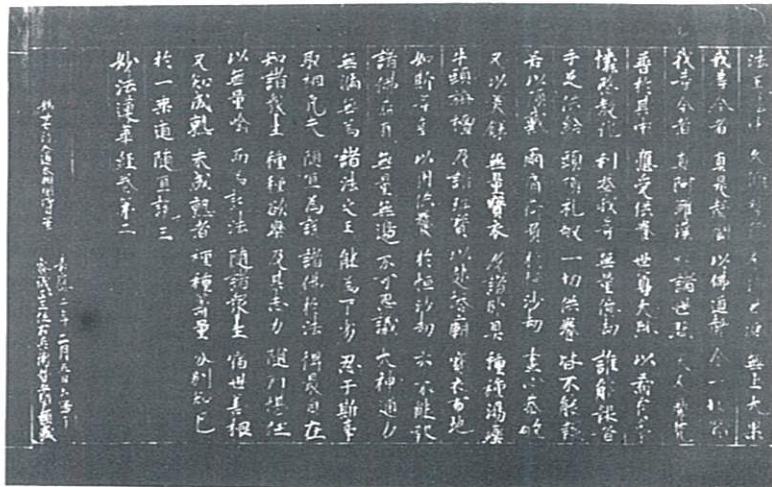 法王法中 久修梵行 今得無漏 無上大果
我等今者 真是聲聞 以佛道聲 令一切聞
我等今者 真阿羅漢 於諸世間 天人魔梵
普於其中 應受供養 世尊大恩 以希有事
憐愍教化 利益我等 無量億劫 誰能報者
手足供給 頭頂礼敬 一切供養 皆不能報
若以頂戴 兩肩荷負 於恒沙劫 盡心恭敬
又以美饍 無量寶衣 及諸臥具 種種湯藥
牛頭栴檀 及諸珍寶 以起塔廟 寶衣布地
如斯等事 以用供養 於恒沙劫 亦不能報
諸佛希有 無量無邊 不可思議 大神通力
無漏無為 諸法之王 能為下劣 忍于斯事
取相凡夫 隨宜為說 諸佛於法 得最自在
知諸衆生 種種欲樂 及其志力 隨所堪任
以無量喩 而為說法 隨諸衆生 宿世善根
又知成熟 未成熟者 種種籌量 分別知已
於一乘道 隨宜說三
妙法蓮華經卷第二
二年二月